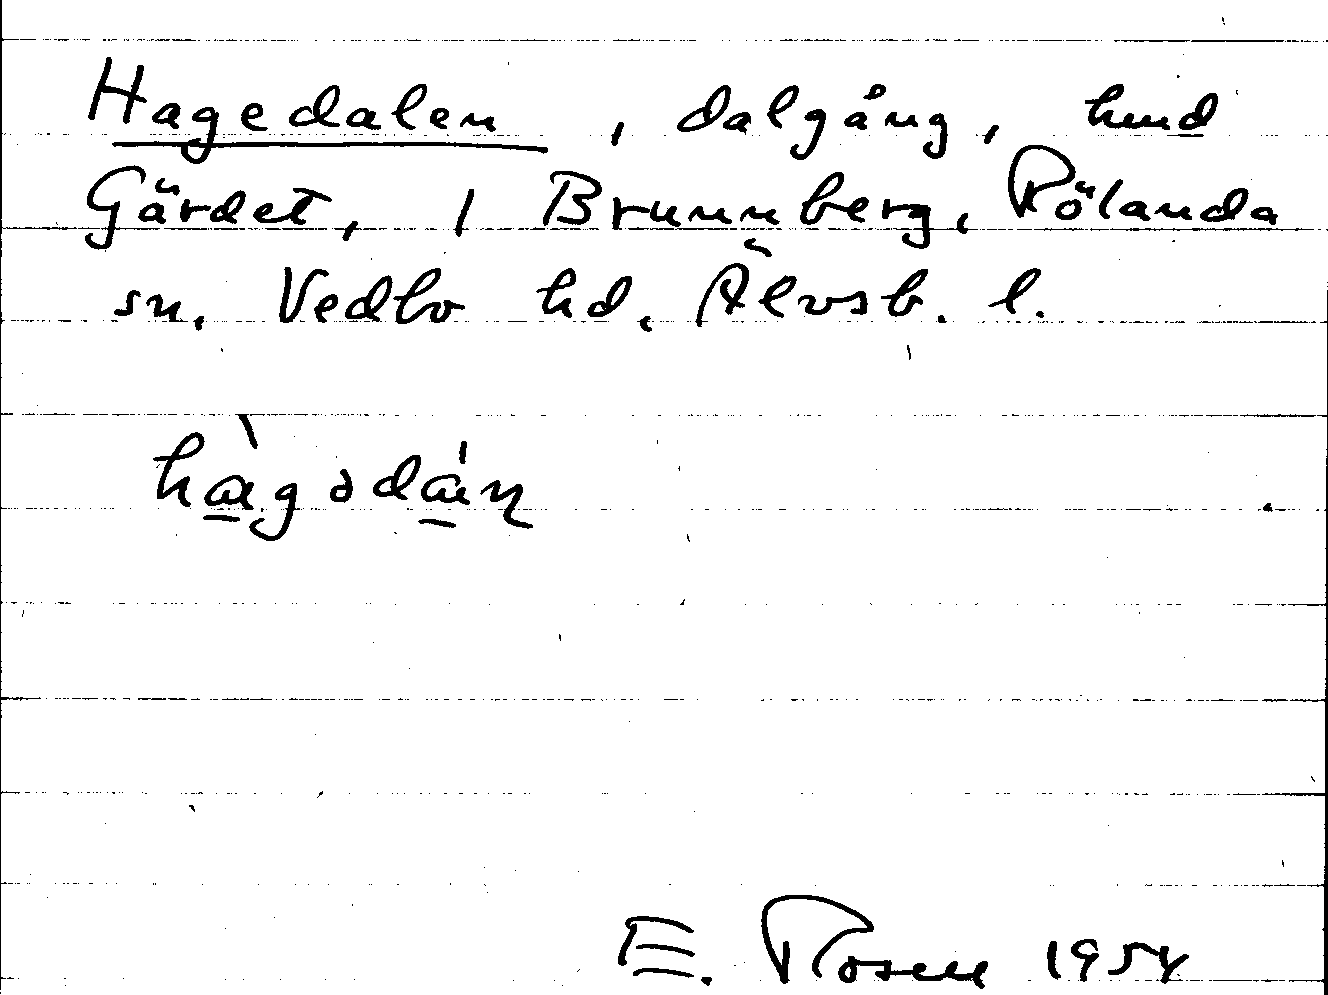 Hagedalen, dalgång, hmd
Gärdet, 1 Brunnberg, Rölanda
sn. Vedbo hd. Älvsb. l.
hàgədáɳ
E. Rosell 1954